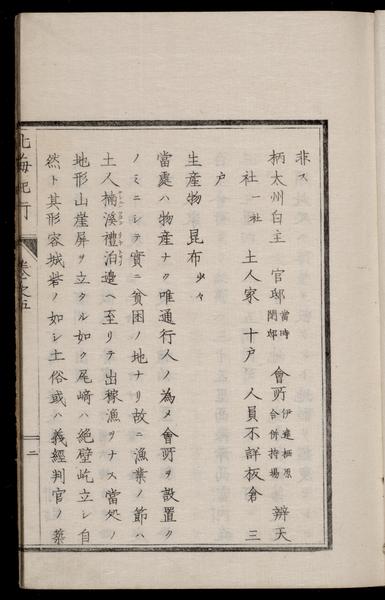 非ス
柄太州白主 官邸 當時閉邸 會所 伊達栖原合併持場 辨天
社 一社 土人家 十戸 人員不詳 板倉 三
戸
生産物 昆布 少々
當處ハ物産ナク唯通行人ノ為メ會所ヲ設置ク
ノミニシテ實ニ貧困ノ地ナリ故ニ漁業ノ節ハ
土人楠溪禮泊邉ヘ至リテ出稼漁ヲナス當処ノ
地形山崖屏ヲ立タル如ク尾﨑ハ絶壁屹立シ自
然ト其形容城砦ノ如シ土俗或ハ義經判官ノ築
北海紀行
巻之五
二